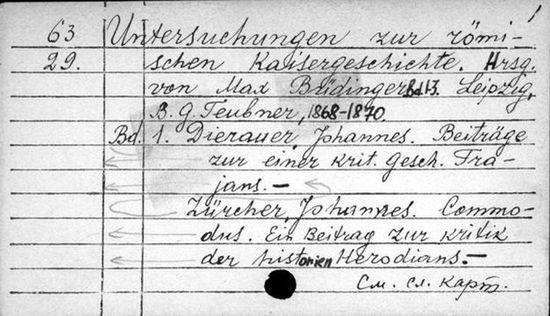 1
63 Untersuchungen zur römi-
29. schen Kaisergeschichte. Hrsg.
von Max Büdinger Bd. 1-3. Leipzig,
B. G. Teubner, 1868-1870
Bd. 1. Dierauer, Johannes. Beiträge
zur einer krit. Gesch. Tra-
jans. —
Zürcher, Johannes. Commo-
dus. Ein Beitrag zur Kritik
der historien Herodians. —
См. сл. карт.